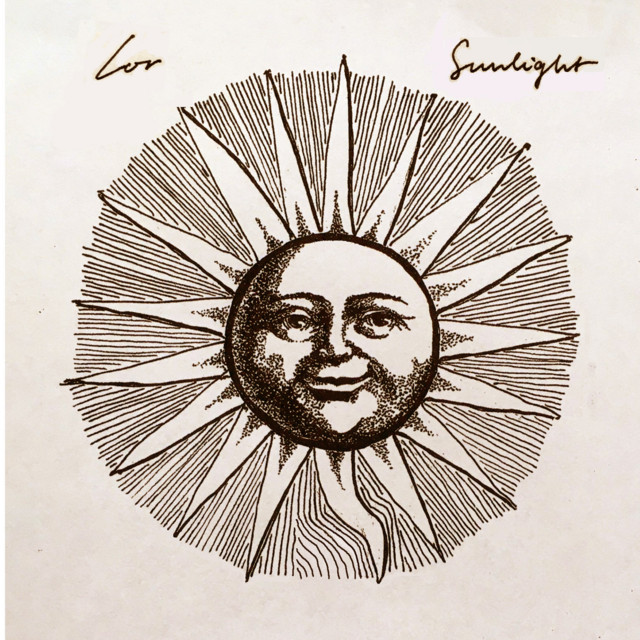 Lor
Sunlight